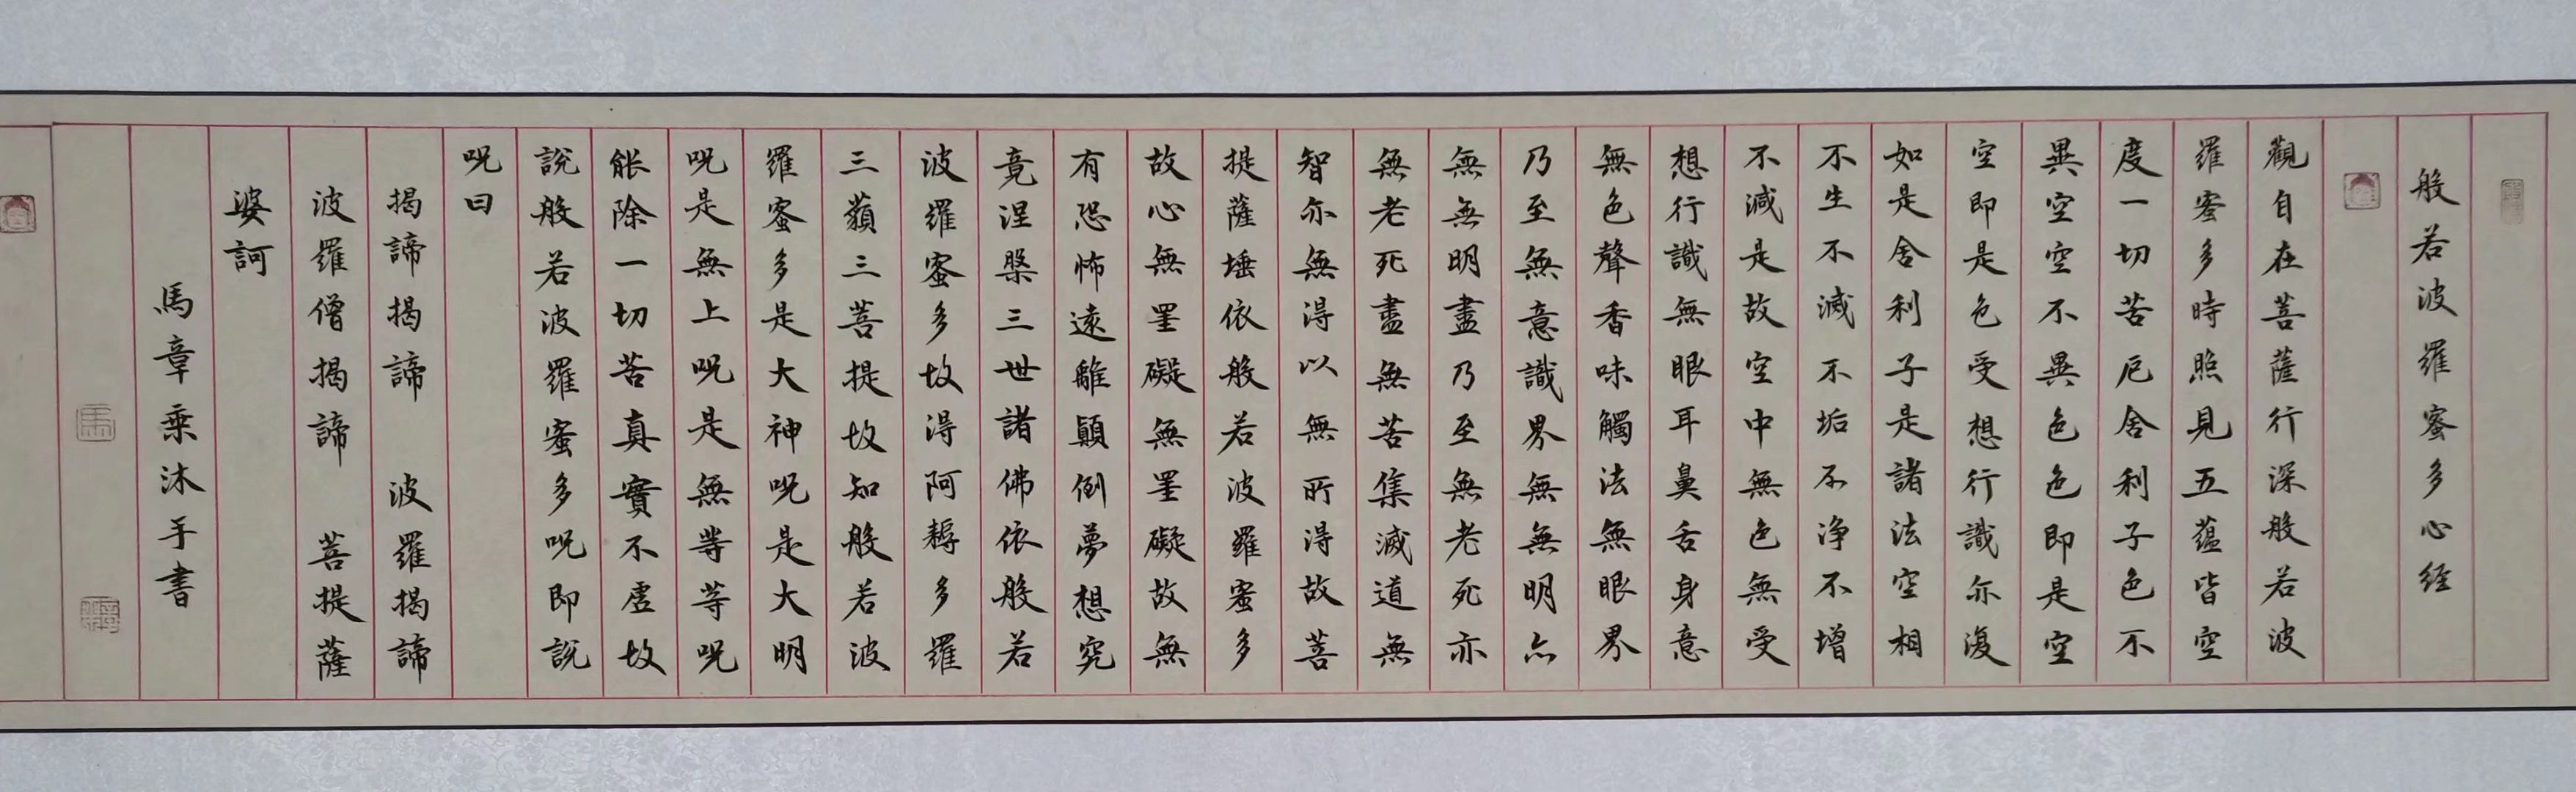 般若波羅蜜多心経
觀自在菩薩行深般若波
羅蜜多時照見五蘊皆空
度一切苦厄舍利子色不
異空空不異色色即是空
空即是色受想行識亦復
如是舍利子是諸法空相
不生不滅不垢不淨不增
不減是故空中無色無受
想行識無眼耳鼻舌身意
無色聲香味觸法無眼界
乃至無意識界無無明亦
無無明盡乃至無老死亦
無老死盡無苦集滅道無
智亦無得以無所得故菩
提薩埵依般若波羅蜜多
故心無罣礙無罣礙故無
有恐怖遠離顛倒夢想究
竟涅槃三世諸佛依般若
波羅蜜多故得阿耨多羅
三藐三菩提故知般若波
羅蜜多是大神呪是大明
呪是無上呪是無等等呪
能除一切苦真實不虛故
說般若波羅蜜多呪即說
呪曰
揭諦揭諦 波羅揭諦
波羅僧揭諦 菩提薩
婆訶
馬章乘沐手書